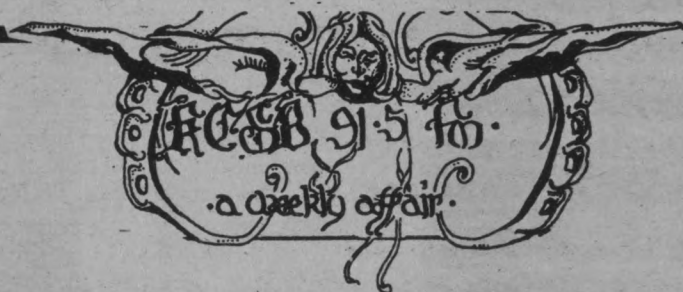 KCSB 91·5 fm·
·a weekly affair·